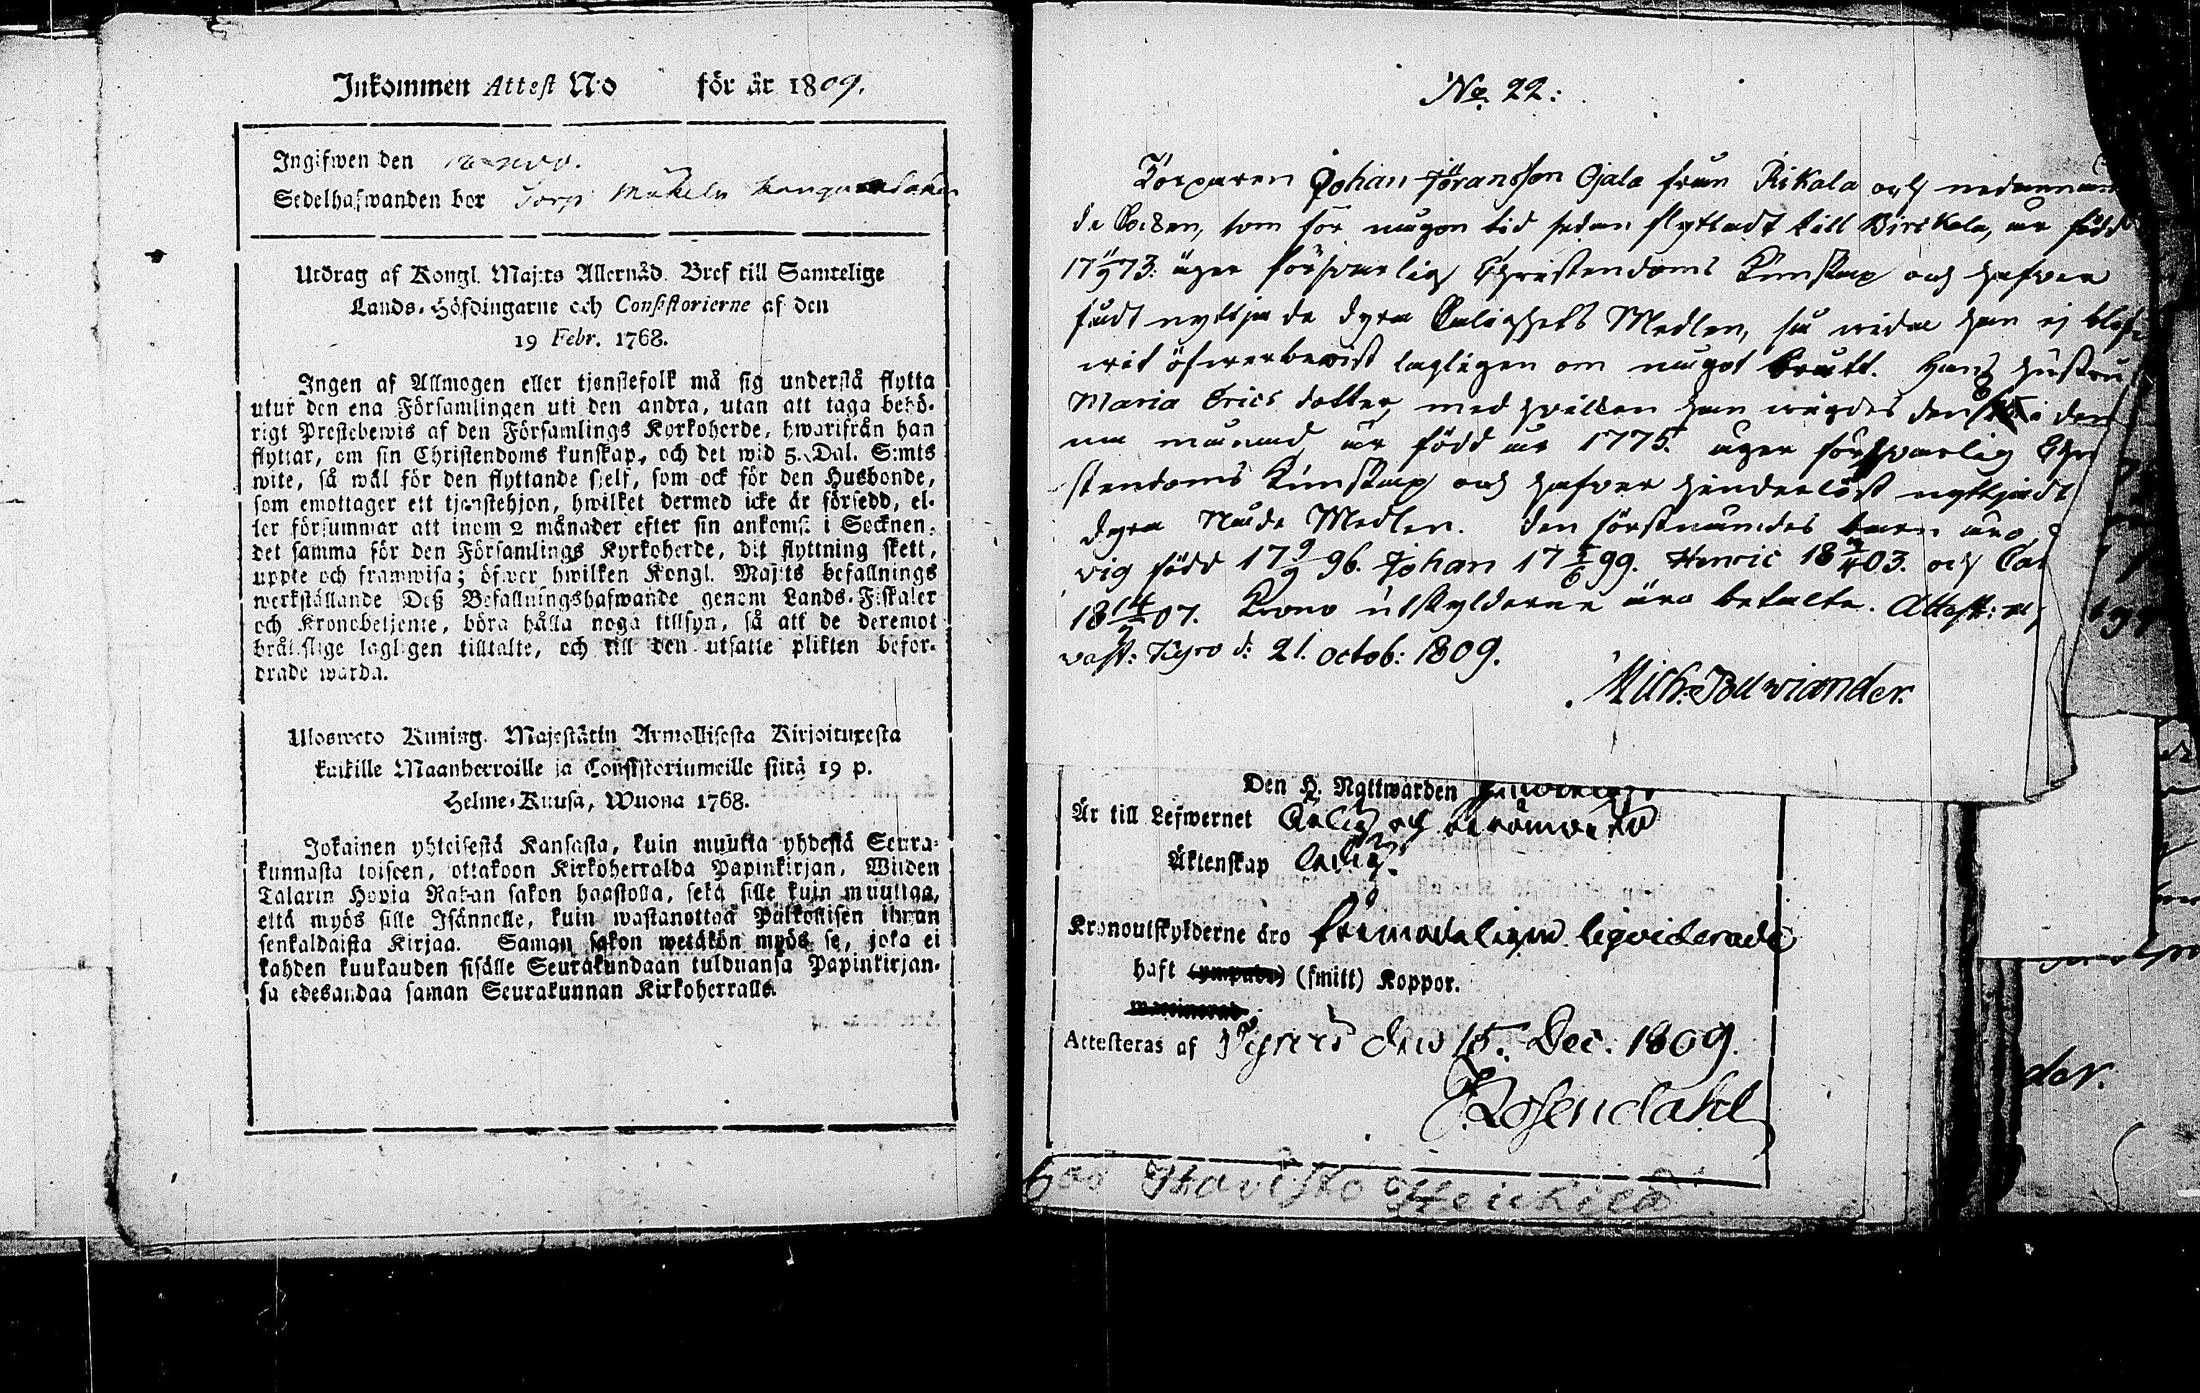 Inkommen Attest N:o för år 1809.
Ingifwen den
Sedelhafwanden bor Torp Mäkelä
Utdrag af Kongl. Maj:ts Allernåd. Bref till Samtelige
Lands-Höfdingarne och Consistorierne af den
19 Febr. 1768.
Ingen af Allmogen eller tjenstefolk må sig understå flytta
utur den ena Församlingen uti den andra, utan att taga behö-
rigt Prestebewis af den Församlings Kyrkoherde, hwarifrån han
flyttar, om sin Christendoms kunskap, och det wid 5. Dal. S:mts
wite, så wäl för den flyttande sjelf, som ock för den Husbonde,
som emottager ett tjenstehjon, hwilket dermed icke är försedd, el-
ler försummar att inom 2 månader efter sin ankomst i Socknen,
det samma för den Församlings Kyrkoherde, dit flyttning skett,
uppte och framwisa; öfwer hwilken Kongl. Maj:ts befallnings
werkställande Deß Befallningshafwande genom Lands-Fiskaler
och Kronobetjente, böra hålla noga tillsyn, så att de deremot
brätslige lagligen tilltalte, och till den utsatte plikten befor-
drade warda.
Ulosweto Kuning. Majestätin Armollisesta Kirjoituxesta
kaikille Maanherroille ja Consistoriumeille siitä 19 p.
Helme-Kuusa, Wuona 1768.
Jokainen yhteisestä Kansasta, kuin muutta yhdestä Seura-
kunnasta toiseen, ottakoon Kirkoherralda Papinkirjan, Wiiden
Talarin Hopia Rahan sakon haastolla, sekä sille kuin muuttaa,
että myös sille Isännelle, kuin wastanottaa Palkollisen ilman
senkaldaista Kirjaa. Saman sakon wetäkön myös se, joka ei
kahden kuukauden sisälle Seurakundaan tulduansa Papinkirjan-
sa edesandaa saman Seurakunnan Kirkoherralle.
No. 22:
Torparen Johan Jöransson Ojala från Rikala och nedannan
de Boken, som för någon tid sedan flyttadt till Birkala, är född
17 73: äger försvarlig Christendoms Kunskap och hafver
fådt nyttja de dyra Salighets Medlen, så vida han ej blif
vit öfverbevist lagligen om något brått. Hans hustru
Maria Erics dotter, med hvilken han vigdes den i den
na månad är född år 1775. äger försvarlig Chri
stendoms Kunskap och hafver hinderlöst nyttjadt
dyra Nåde Medlen. Den förstnämdes barn äro
vig född 17 9/9 96. Johan 17 99. Henric 18 03. och Ca
18 14 07. Krono utskylderne äro betalte. Attest:
vast: Kyro d: 21. octob: 1809.
Mich: Pollviander.
Den H. Nattwarden
Är till Lefwernet ärlig och
Äktenskap ledig.
Kronoutskylderne äro liqviderade
haft (ympade) (smitt) Koppor.
waccinerad
Attesteras af den 15. Dec. 1809.
Rosendahl